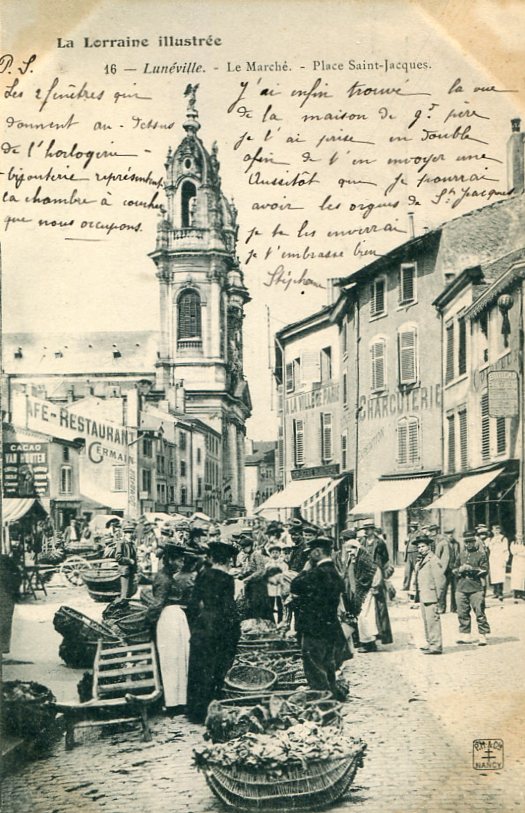 La Lorraine illustrée
16 — Lunéville. - Le Marché. - Place Saint-Jacques.
P.S.
Les 2 fenêtres qui
donnent au-dessus
de l'horlogerie -
bijouterie représentent
la chambre à coucher
que nous occupons.
J'ai enfin trouvé la vue
de la maison de gd père
je l'ai prise en double
afin de t'en envoyer une
Aussitôt que je pourrai
avoir les orgues de St Jacques
je te les enverrai
je t'embrasse bien
Stéphane
CAFÉ-RESTAURANT
GERMAIN
CACAO
VAN HOUTEN
A LA VILLE DE PARIS
CHARCUTERIE
PH. & Cie
NANCY